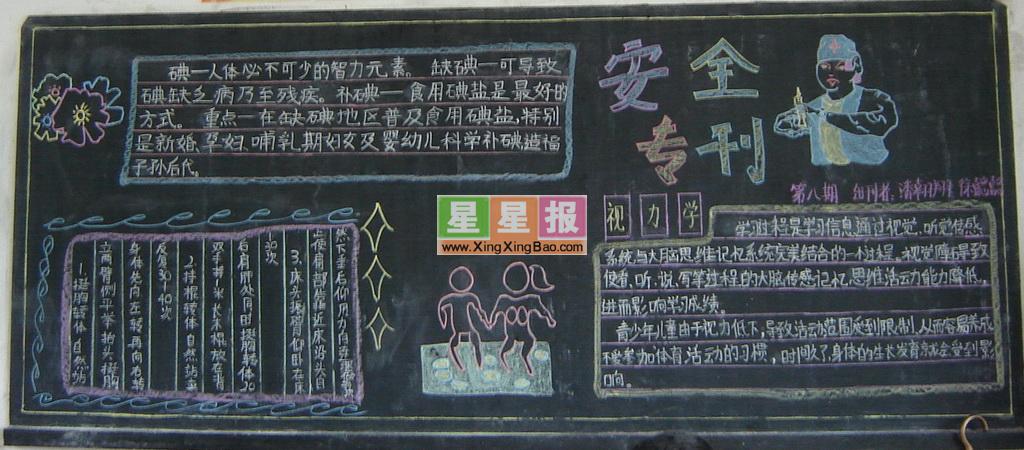 碘一人体必不可少的智力元素。缺碘一可导致
碘缺乏病乃至残疾。补碘一食用碘盐是最好的
方式。重点一在缺碘地区普及食用碘盐,特别
是新婚、孕妇、哺乳期妇女及婴幼儿科学补碘,造福
子孙后代。
安全
专刊
第八期 出刊者:
星星报
www.XingXingBao.com
视力学
学习过程是学习信息通过视觉、听觉传感
系统与大脑思维记忆系统完美结合的一个过程。视觉障碍导致
使看、听、说、写等过程的大脑传感记忆思维活动能力降低,
进而影响学习成绩。
青少年儿童由于视力低下,导致活动范围受到限制,从而容易养成
不参加体育活动的习惯,时间久了,身体的生长发育亦就会受到影
响。
1.挺胸转体 自然站
立两臂侧平举抬头挺胸
身体先向左转,再向右转
反复30-40次
2.持棍转体 自然站立
双手握1米长木棍放在背
后肩胛处同时挺胸转体20
30次
3.床头挺胸 仰卧在床